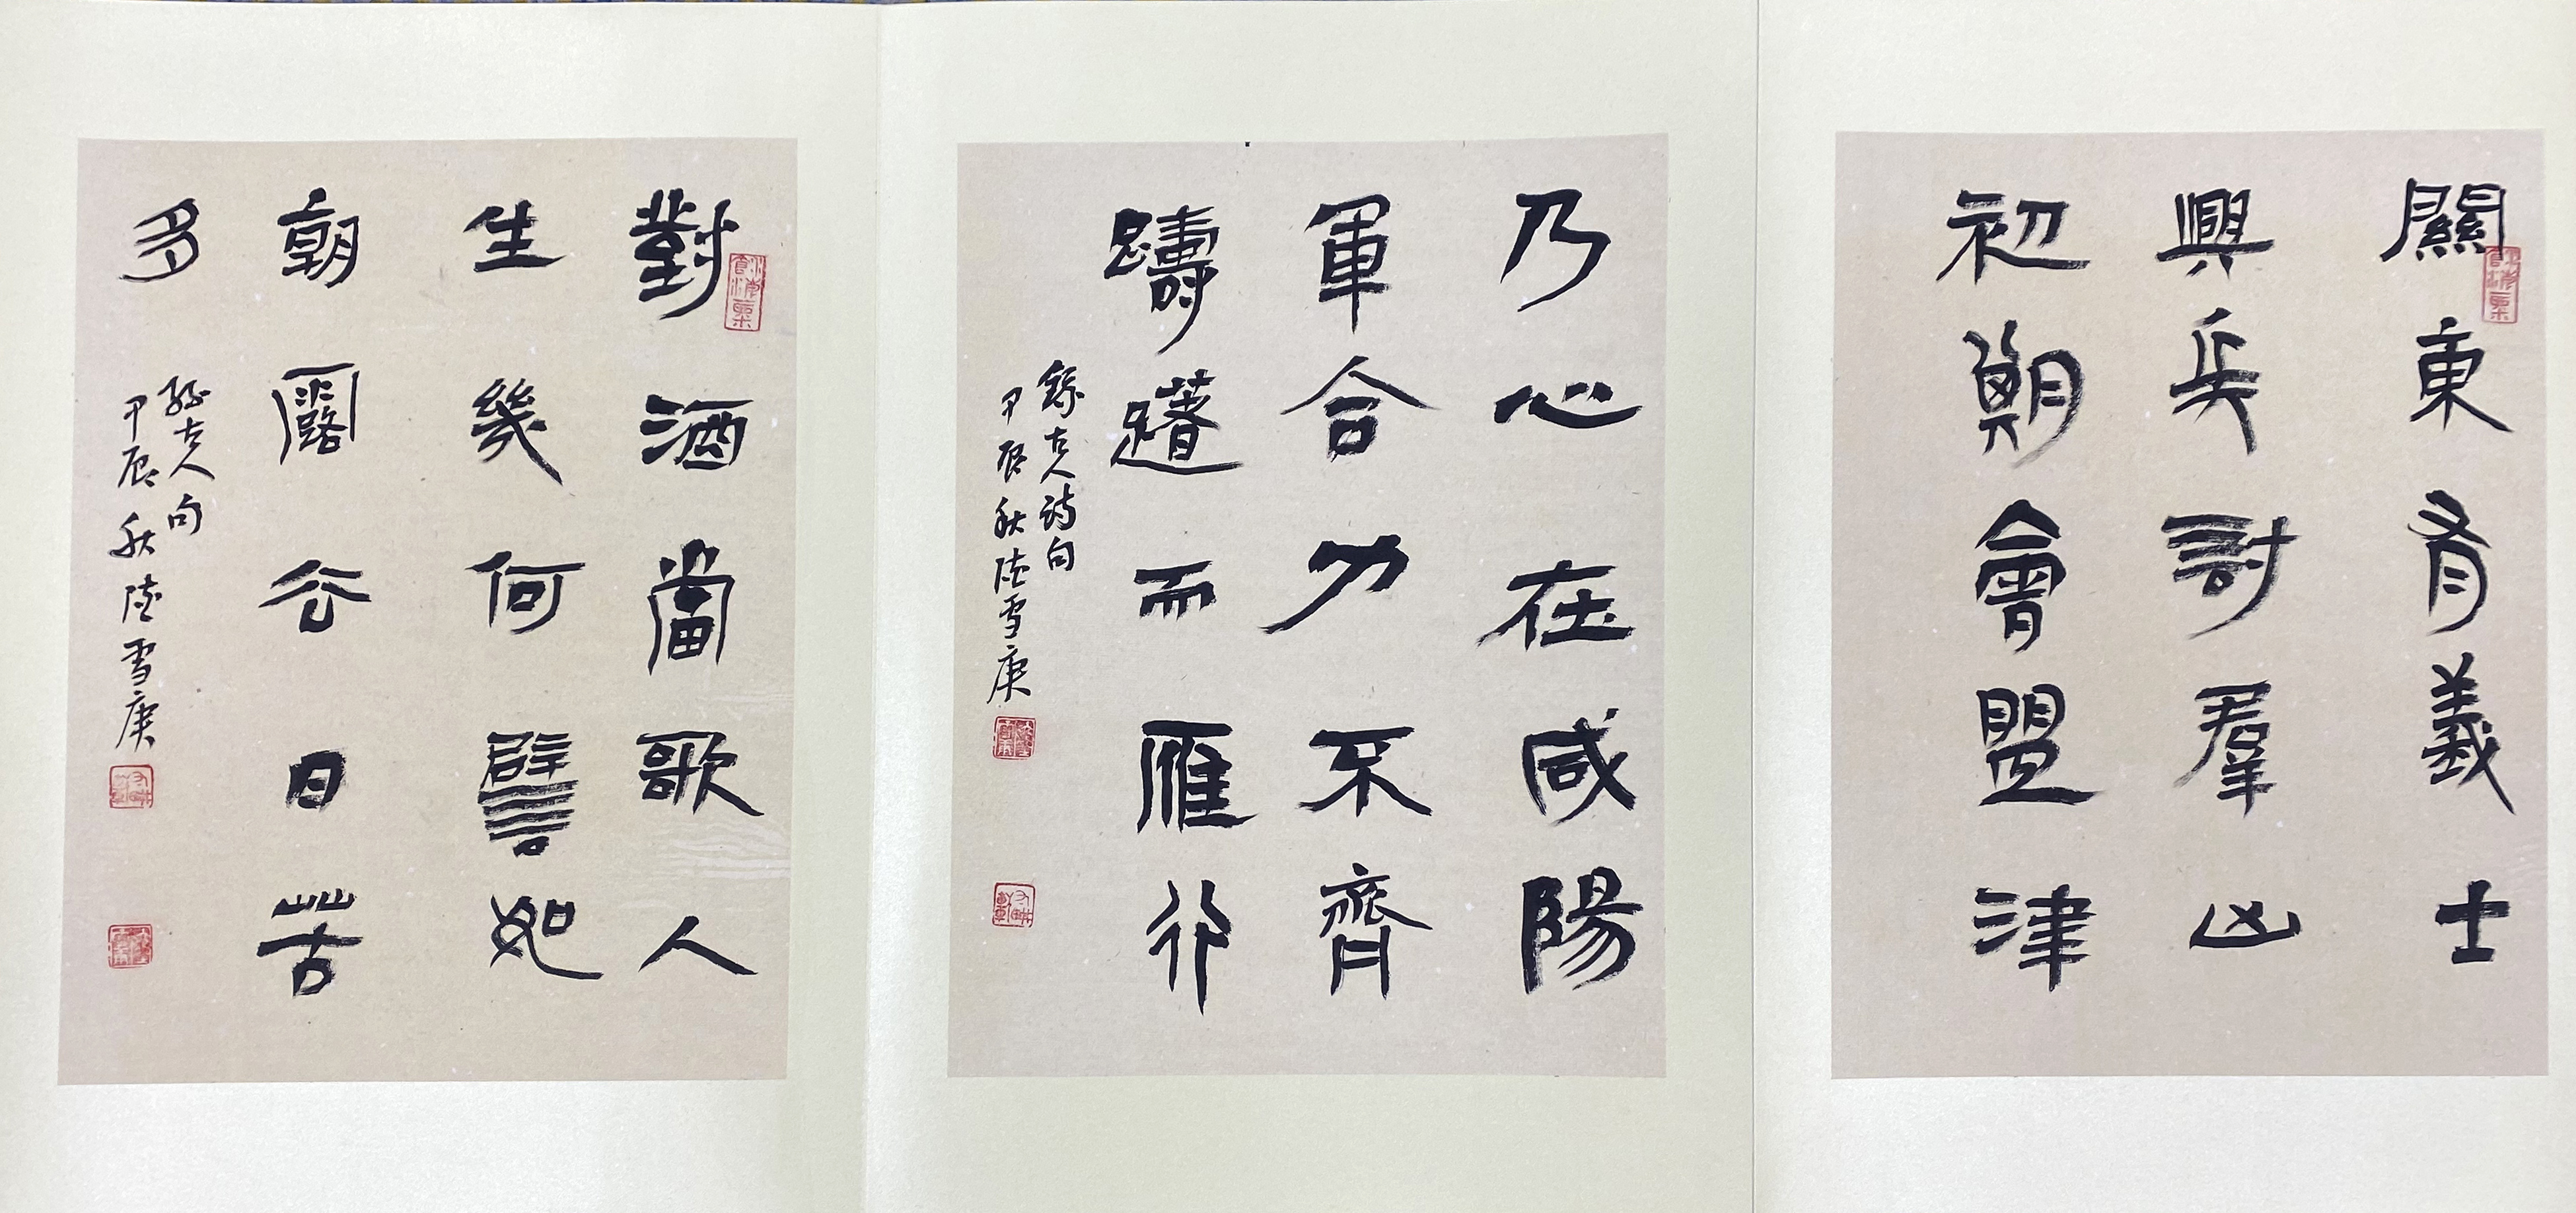 關東有義士
興兵討羣凶
初期會盟津
乃心在咸陽
軍合力不齊
躊躇而雁行
錄古人詩句
甲辰秋陸雪庚
對酒當歌人
生幾何譬如
朝露去日苦
多
錄古人句
甲辰秋陸雪庚